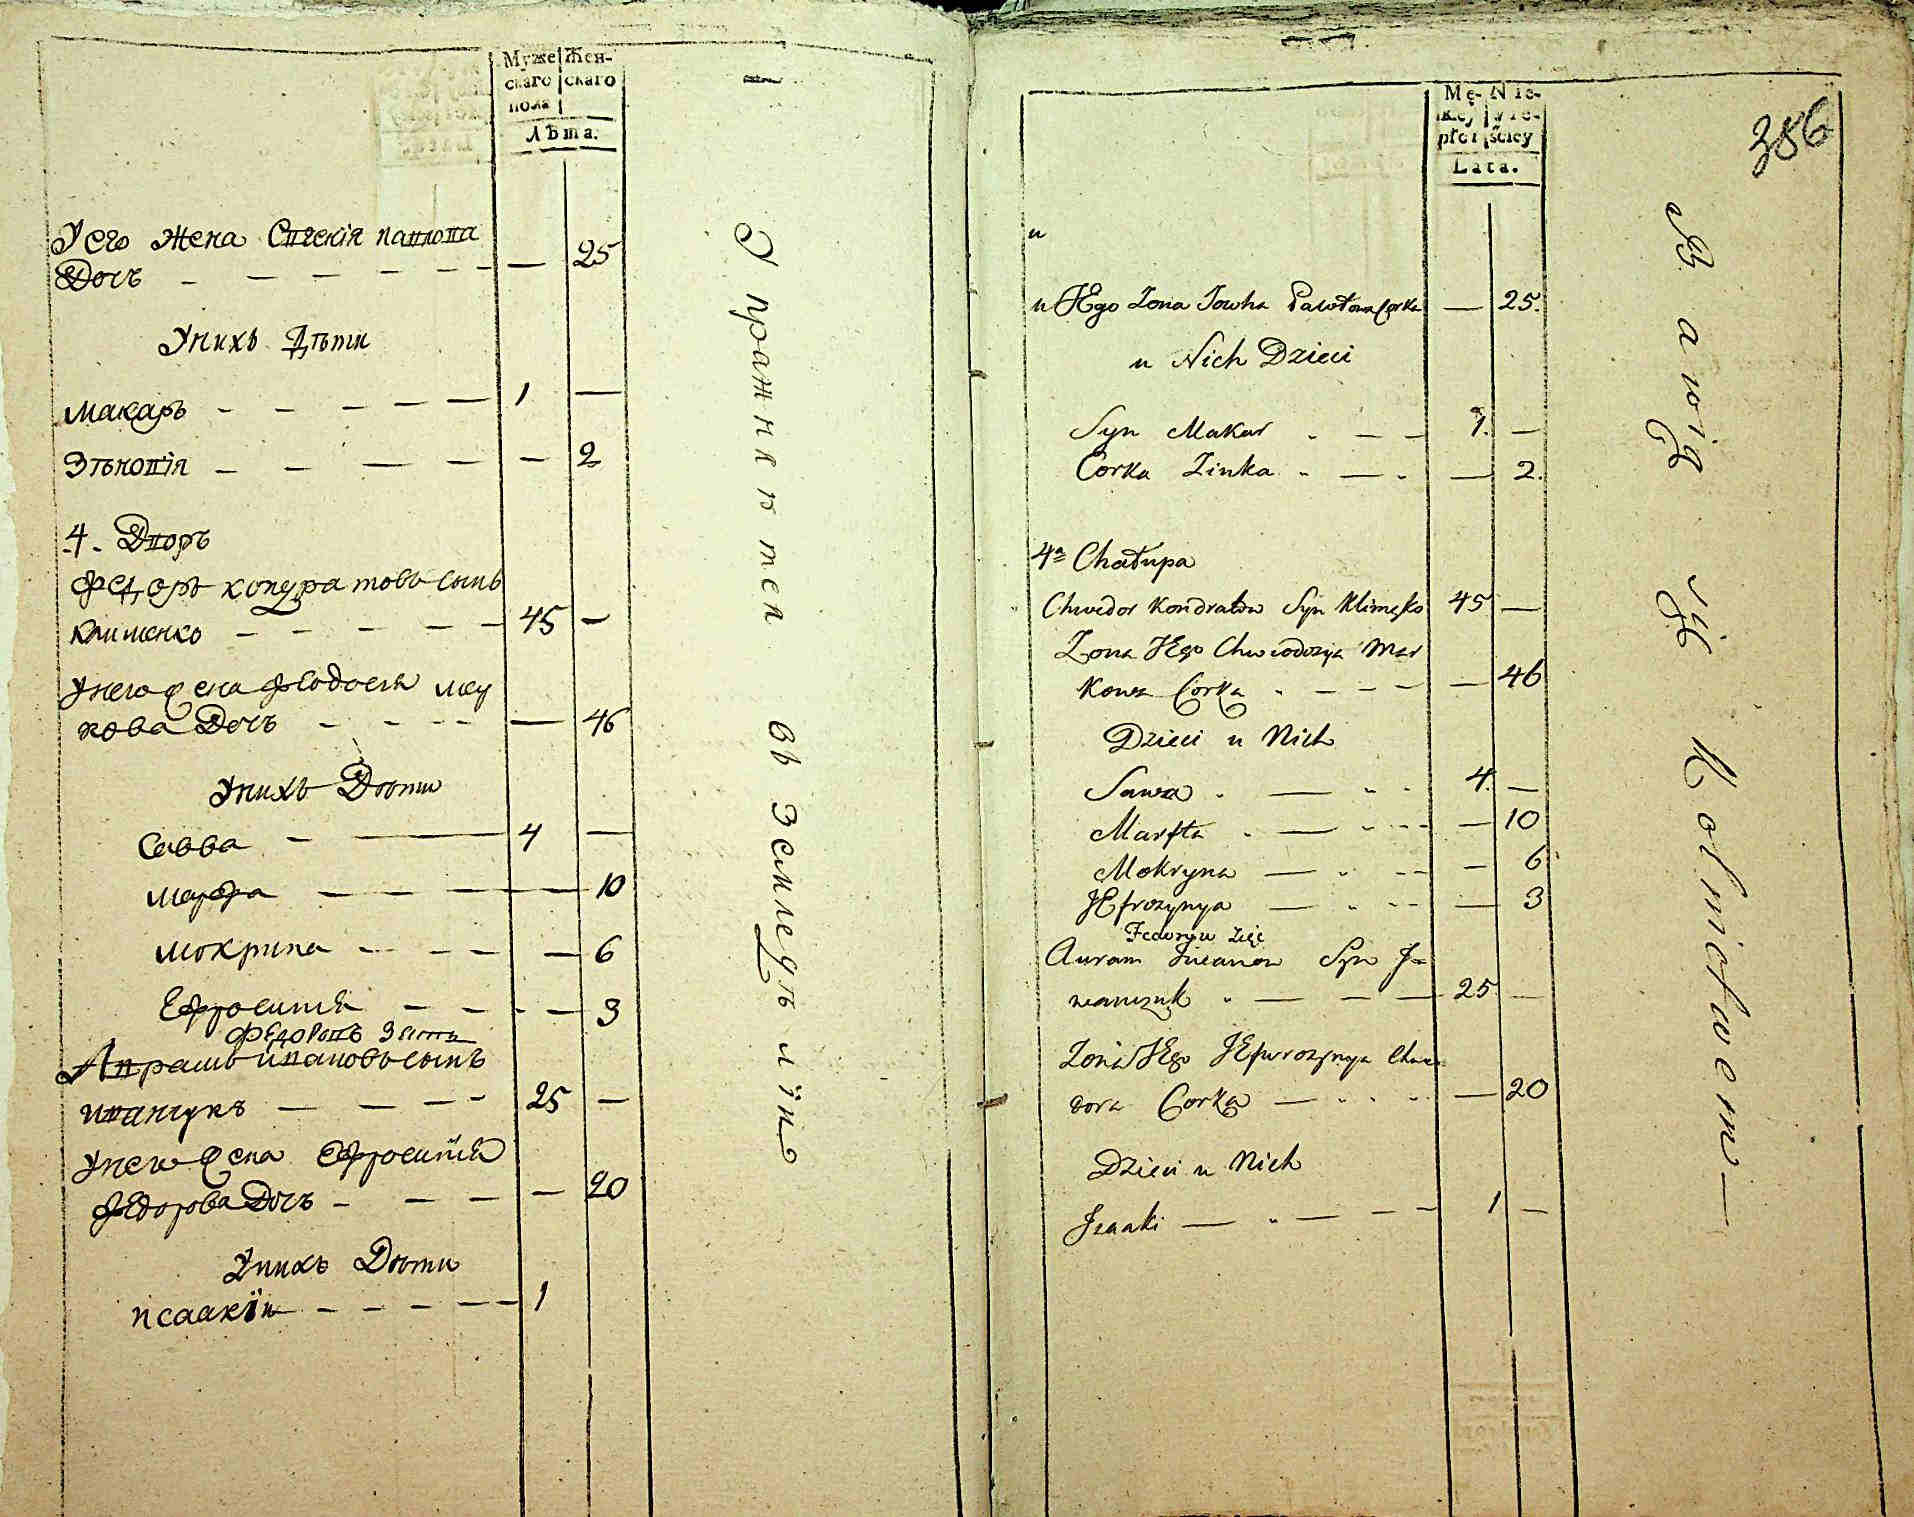 Муже Жен-
скаго скаго
пола
Лѣта.
У его жена Евгенія павлова
Дочь — — — — — — 25
У нихъ Дѣти
макаръ — — — — — 1 —
Зѣновія — — — — — 2
4. Дворъ
Федоръ кондратовъ сынъ
клименко — — — — — 45 —
У него жена Феодосія мар
кова Дочь — — — — — 46
У нихъ Дѣти
Савва — — 4 —
марфа — — — — 10
мокрина — — — — — 6
Ефросинія — — — — — 3
Федоровъ Зять
Аврамъ ивановъ сынъ
иванчукъ — — — — 25 —
У него жена Ефросинія
Федорова Дочь — — — — — 20
У нихъ Дѣти
исаакій — — — — — 1
Упражняется въ земледѣліи
Mę- Nie-
skiey wie-
płci ściey
Lata.
386
u
u JEgo Zona Jowha Pawłowa Corka — 25.
u Nich Dzieci
Syn Makar — — 1. —
Corka Zinka — — — 2.
4ª Chałupa
Chwedor Kondratow Syn Klimęko 45 —
Zona JEgo Chwiodozya Mar
kowa Corka — — — — 46
Dzieci u Nich
Sawa — 4. —
Marfta — — — 10
Mokryna — — — — 6
JEfrozynya — — — — 3
Fedoryw Zięć
Auram Iwanow Syn J-
wanczuk — — — 25 —
Zona JEgo JEfwrozynya Chwe
dora Corka — — 20
Dzieci u Nich
Jzaaki — — — — 1 —
Bawią się Rolnictwem —